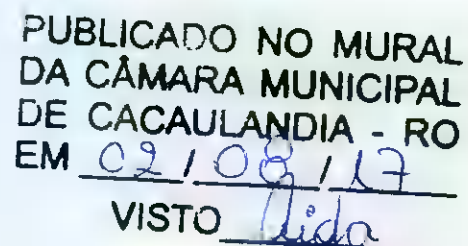 PUBLICADO NO MURAL
DA CÂMARA MUNICIPAL
DE CACAULANDIA - RO
EM 02 / 08 / 17
VISTO